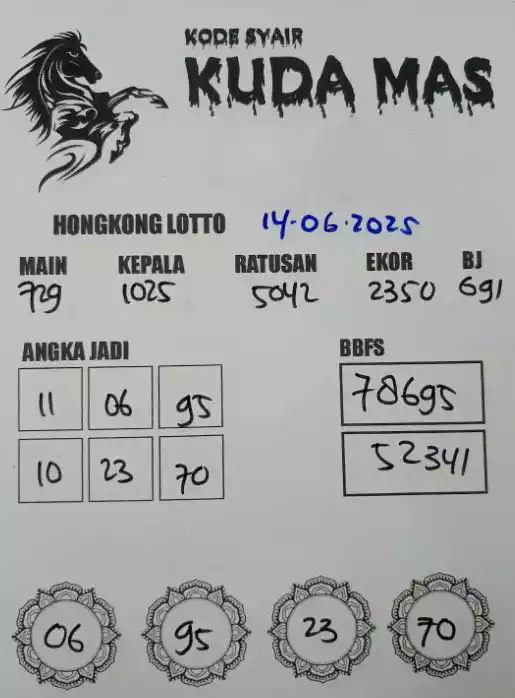 KODE SYAIR
KUDA MAS
HONGKONG LOTTO 14-06-2025
MAIN KEPALA RATUSAN EKOR BJ
729 1025 5042 2350 691
ANGKA JADI BBFS
11 06 95 78695
10 23 70 52341
06 95 23 70